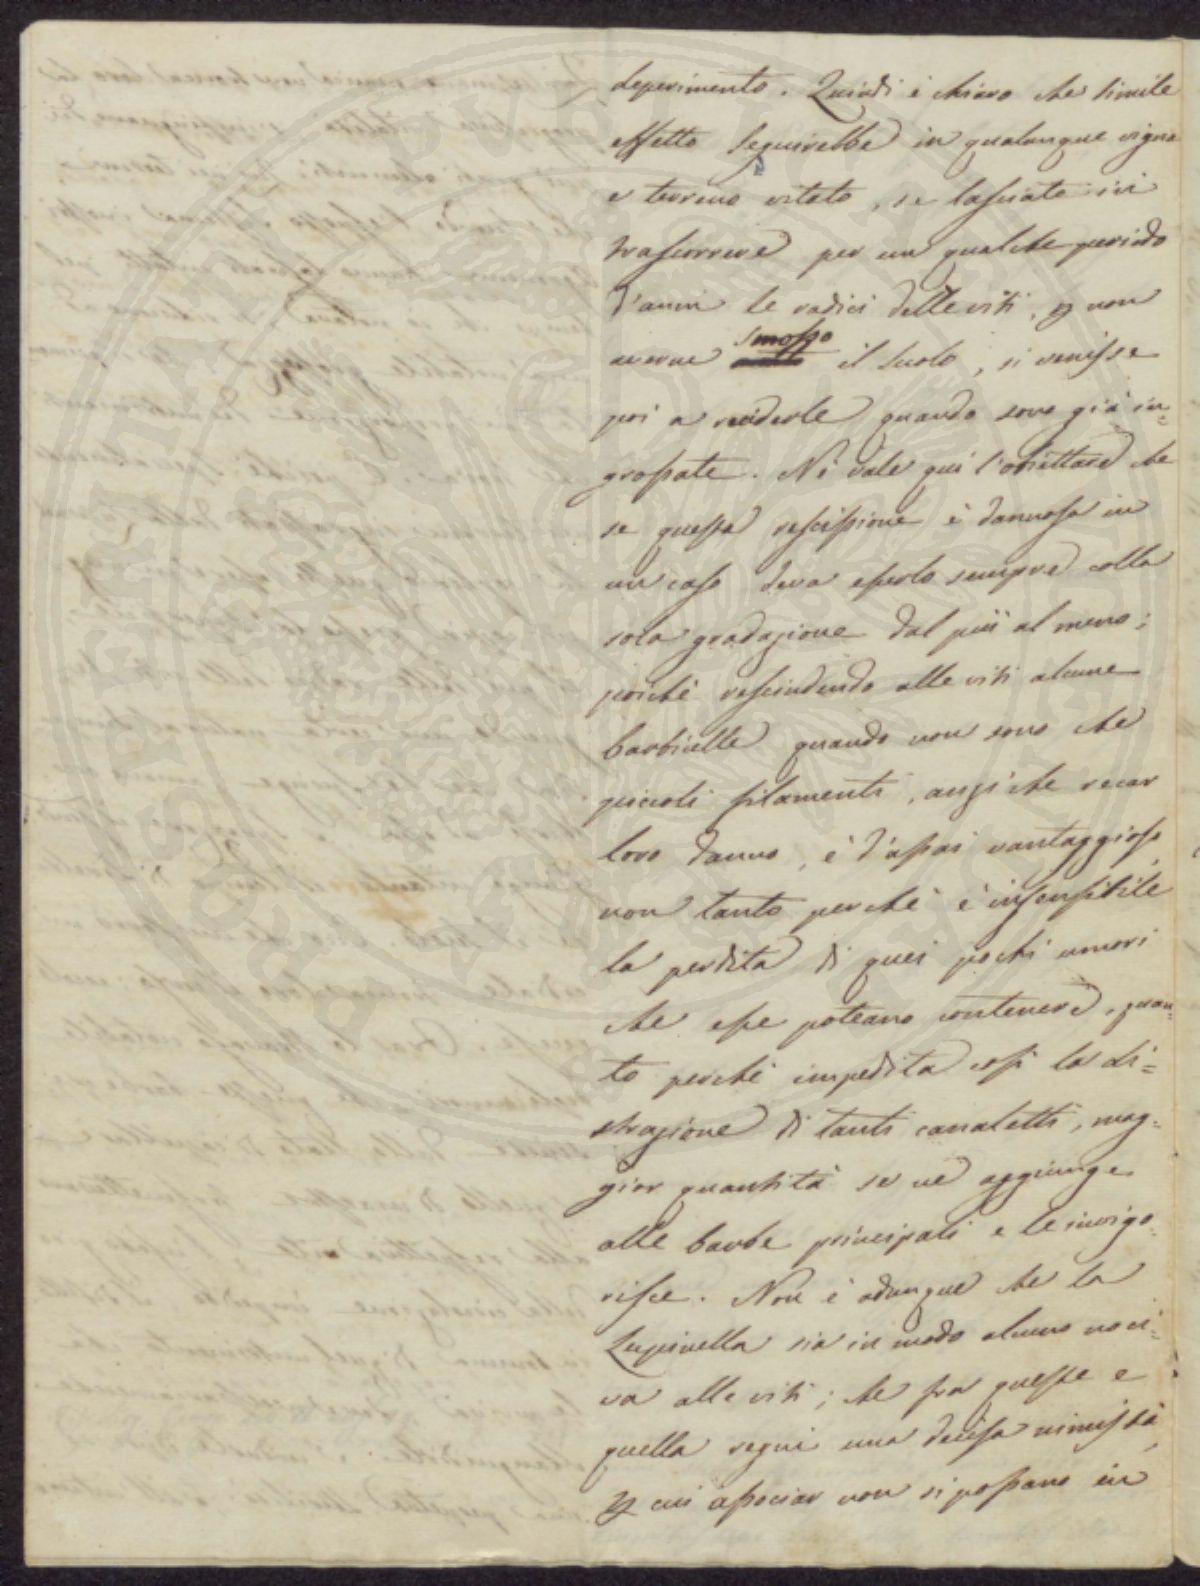 deperimento. Quindi è chiaro che simile
effetto seguirebbe in qualunque vigna
e terreno vitato, se lasciate ivi
trascorrere per un qualche periodo
d'anni le radici delle viti, p non
averne smosso il suolo, si venisse
poi a reciderle quando sono già in=
grossate. Nè vale qui l'obiettare che
se questa rescissione è dannosa in
un caso deva esserlo sempre colla
sola gradazione dal più al meno;
poichè rescindendo alle viti alcune
barbicelle quando non sono che
piccoli filamenti, anzi che recar
loro danno, è d'assai vantaggioso,
non tanto perchè è insensibile
la perdita di quei pochi umori
che esse poteano contenere, quan=
to perchè impedita così la di=
strazione di tanti canaletti, mag=
gior quantità se ne aggiunge
alle barbe principali e le invigo=
risce. Non è adunque che la
Lupinella sia in modo alcuno noci=
va alle viti; che fra queste e
quella regni una decisa nimistà,
p cui associar non si possano in